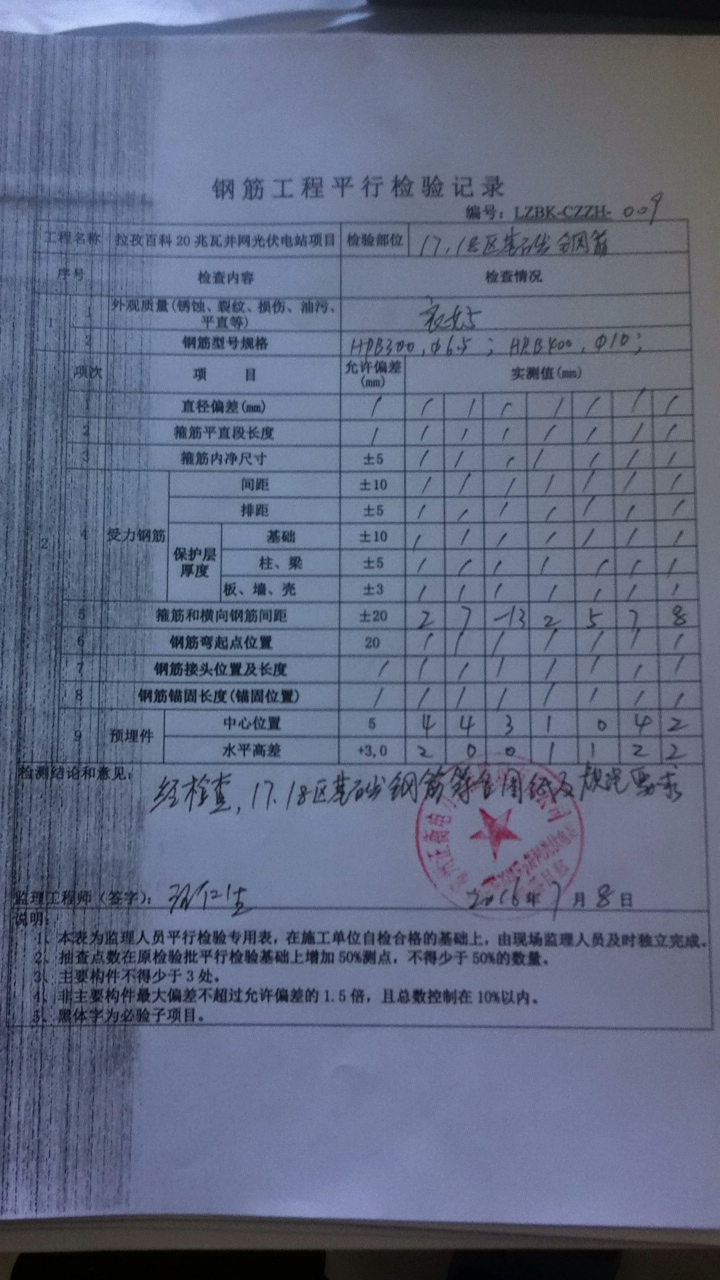 钢筋工程平行检验记录
编号：LZBK-CZZH-009
工程名称 拉孜百科20兆瓦并网光伏电站项目 检验部位 17.18区基础钢筋
序号 检查内容 检查情况
1 1 外观质量(锈蚀、裂纹、损伤、油污、
平直等)
2 钢筋型号规格 HPB300,Φ6.5；HRB400,Φ10；
项次 项 目 允许偏差
(mm) 实测值(mm)
1 直径偏差(mm) / / / / / / / /
2 箍筋平直段长度 / / / / / / / /
3 箍筋内净尺寸 ±5 / / / / / / /
2 4 受力钢筋 间距 ±10 / / / / / / /
排距 ±5 / / / / / / /
保护层
厚度 基础 ±10 / / / / / / /
柱、梁 ±5 / / / / / / /
板、墙、壳 ±3 / / / / / / /
5 箍筋和横向钢筋间距 ±20 2 7 -13 2 5 7 8
6 钢筋弯起点位置 20 / / / / / / /
7 钢筋接头位置及长度 / / / / / / / /
8 钢筋锚固长度(锚固位置) / / / / / / / /
9 预埋件 中心位置 5 4 4 3 1 0 4 2
水平高差 +3,0 2 0 0 1 1 2 2
检测结论和意见：
经检查,17.18区基础钢筋符合图纸及规范要求
监理工程师（签字）： 2016年7月8日
说明：
1、本表为监理人员平行检验专用表，在施工单位自检合格的基础上，由现场监理人员及时独立完成。
2、抽查点数在原检验批平行检验基础上增加50%测点，不得少于50%的数量。
3、主要构件不得少于3处。
4、非主要构件最大偏差不超过允许偏差的1.5倍，且总数控制在10%以内。
5、黑体字为必验子项目。